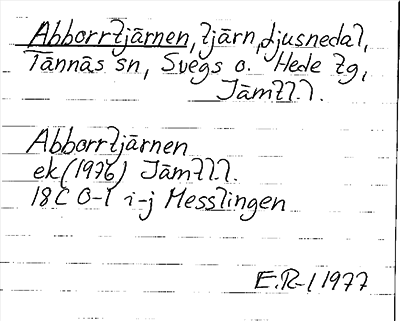 Abborrtjärnen, tjärn, Ljusnedal,
Tännäs sn, Svegs o. Hede tg,
Jämtl.l.
Abborrtjärnen
ek (1976) Jämtl.l.
18C 0-1 i-j Messlingen
E.R-l 1977